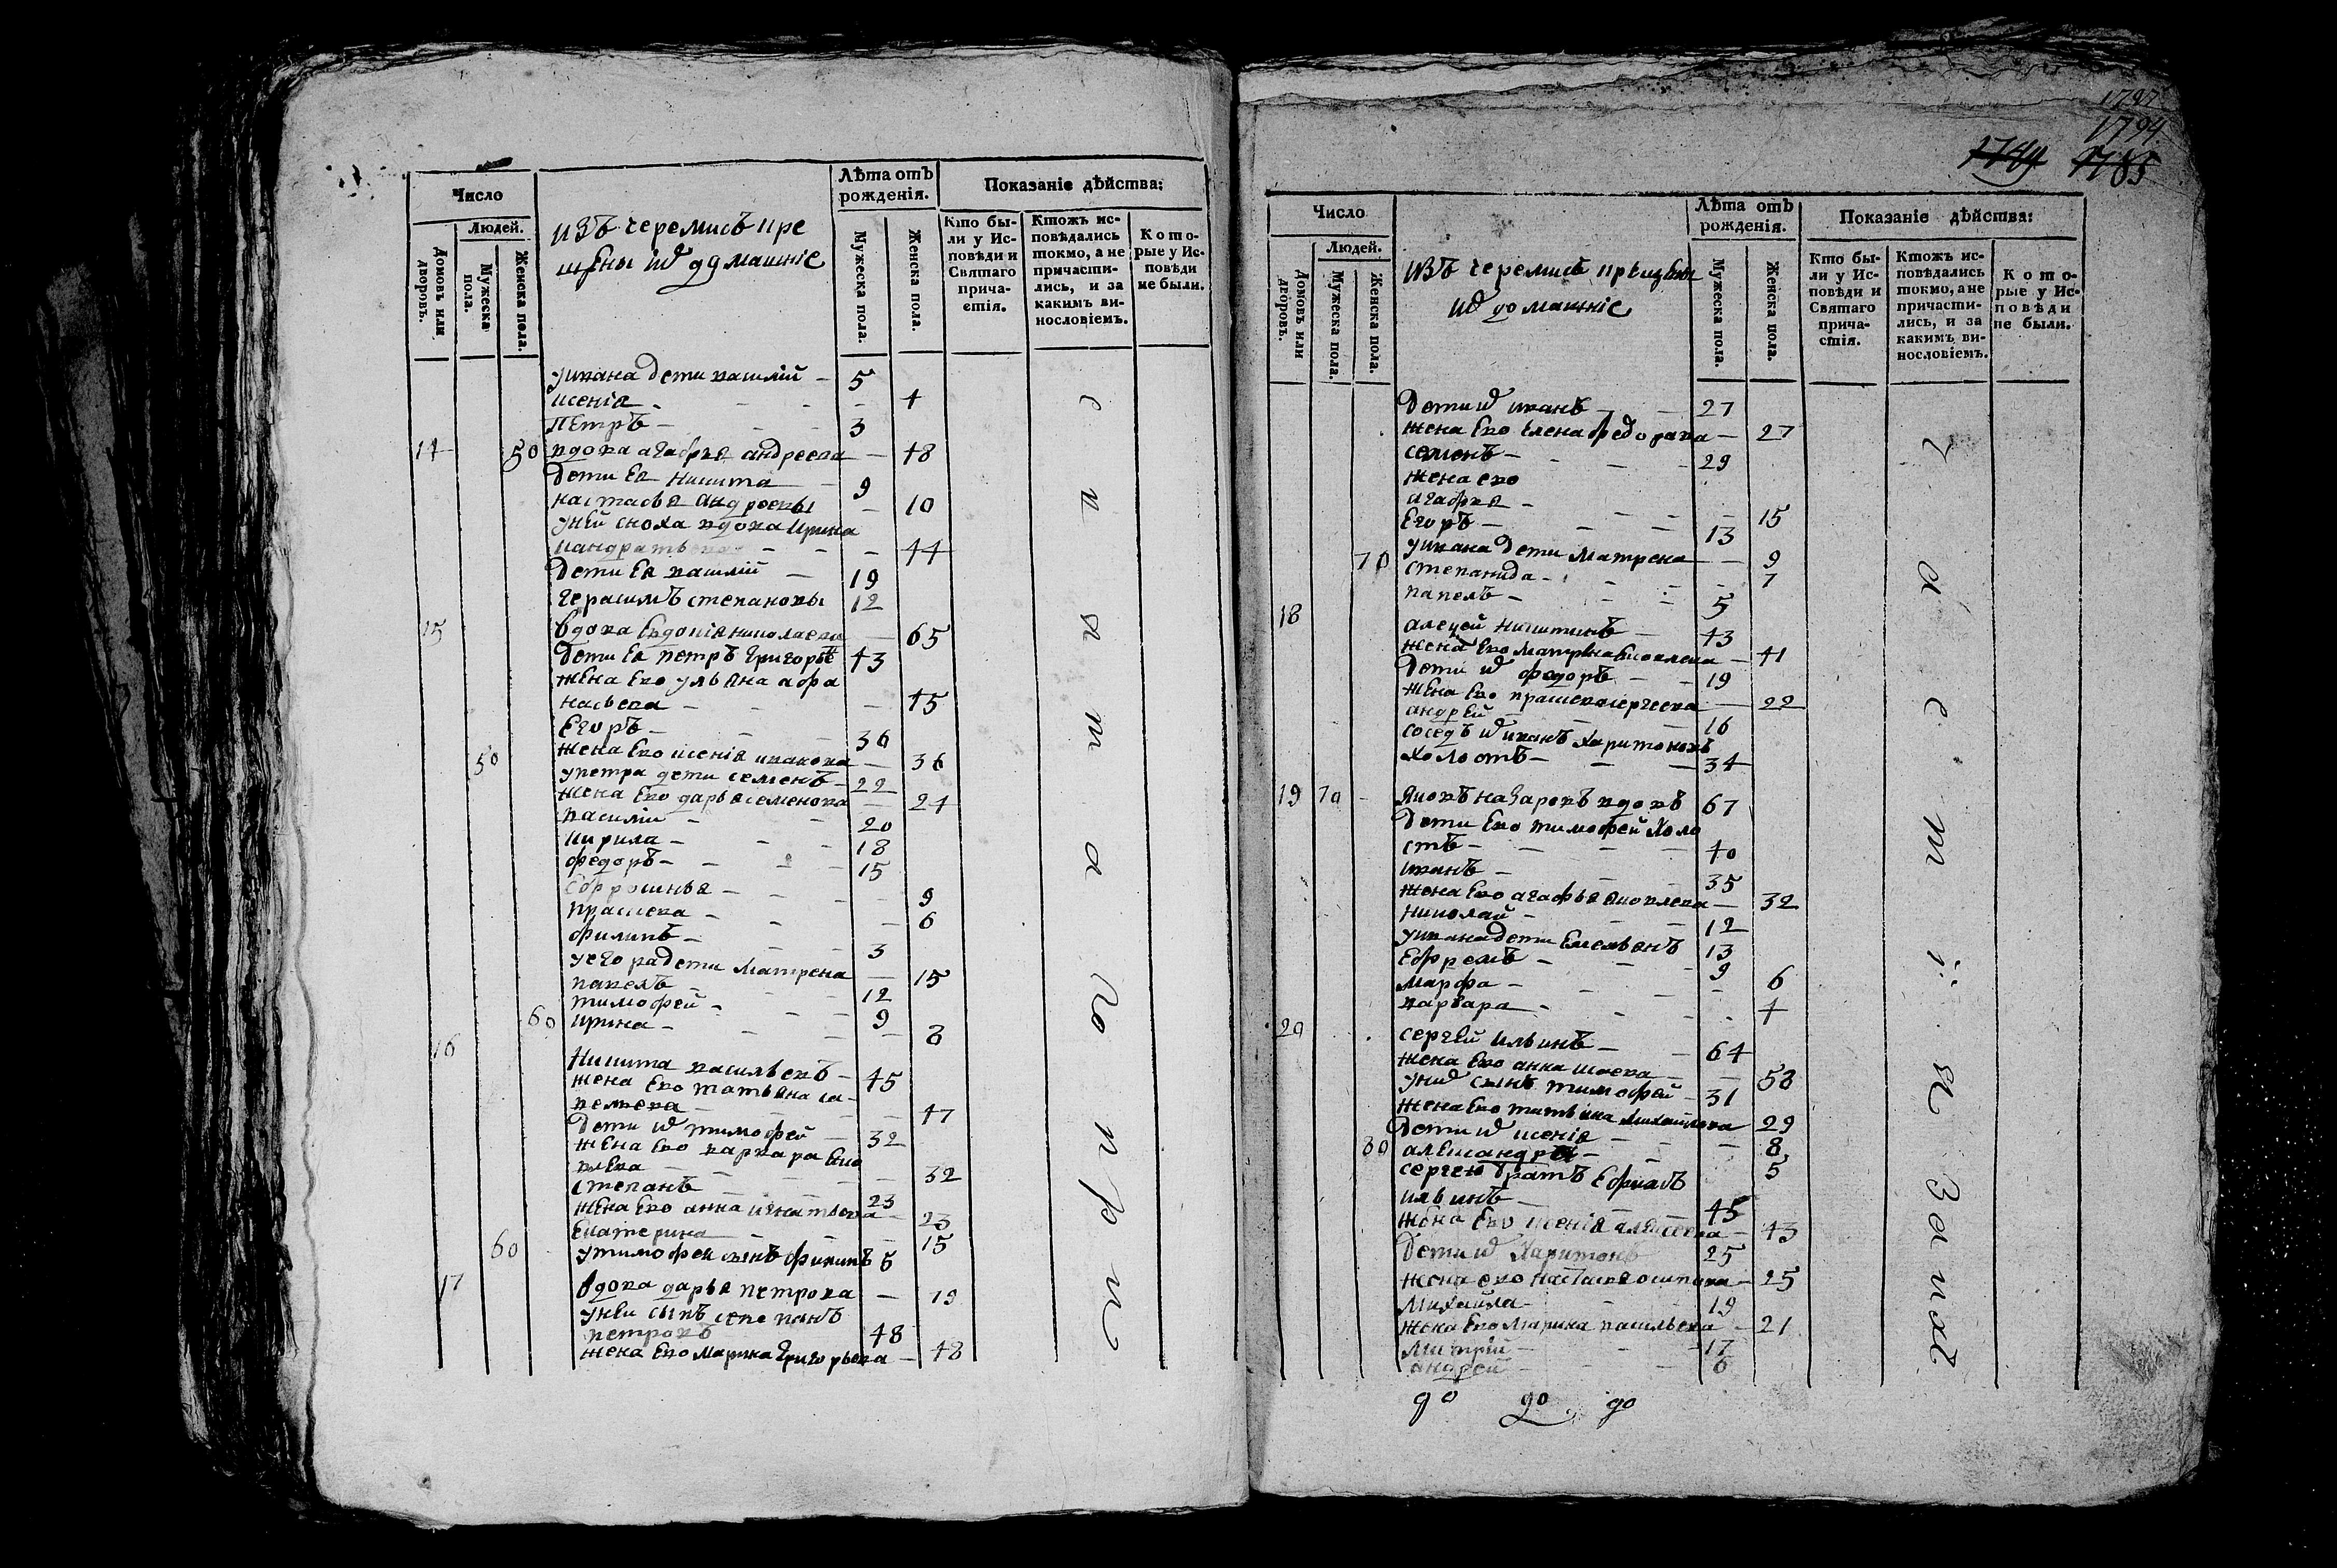 Число
Людей.
Домовъ или дворовъ.
Мужеска пола.
Женска пола.
изъ черемисъ кре
щены и домашніе
Лѣта отъ
рожденія.
Мужеска пола.
Женска пола.
Показаніе дѣйства:
Кто бы-
ли у Ис-
повѣди и
Святаго
прича-
стія.
Ктожъ ис-
повѣдались
токмо, а не
причасти-
лись, и за
какимъ ви-
нословіемъ.
Кото-
рые у Ис-
повѣди
не были.
уивана дети василій - 5
ксенія - 4
петръ - 3
14 50 вдова агафья андреева - 48
дети ея никита - 9
настасья андреевы - 10
уней сноха вдова ирина
кандратьева - 44
дети ея василій - 19
герасимъ степановы 12
15 вдова евдокія николаева - 65
дети ея петръ григорьевъ 43
жена ево ульяна афа
насьева - 45
егоръ - 36
50 жена ево ксенія иванова - 36
упетра дети семенъ - 22
жена ево дарья семенова - 24
василій - 20
кирила - 18
федоръ - 15
ефросинья - 9
прасковья - 6
филипъ - 3
уегора дети матрена - 15
павелъ - 12
тимофей - 9
60 ирина - 8
16 никита васильевъ - 45
жена ево татьяна са-
вельева - 47
дети и тимофей - 32
жена ево варвара яко
влева - 32
степанъ - 23
жена ево анна игнатьева - 23
екатерина - 15
60 утимофея сынъ филипъ 6
17 вдова дарья петрова - 19
уней сынъ степанъ
петровъ 48
жена ево марина григорьева - 48
1797
1794
1785
Число
Людей.
Домовъ или дворовъ.
Мужеска пола.
Женска пола.
изъ черемисъ крещены
и домашніе
Лѣта отъ
рожденія.
Мужеска пола.
Женска пола.
Показаніе дѣйства:
Кто бы-
ли у Ис-
повѣди и
Святаго
прича-
стія.
Ктожъ ис-
повѣдались
токмо, а не
причасти-
лись, и за
какимъ ви-
нословіемъ.
Кото-
рые у Ис-
повѣди
не были.
дети и иванъ - 27
жена ево елена федорова - 27
семенъ - 29
жена ево
агафья - 15
егоръ - 13
70 уивана дети матрена - 9
степанида - 7
павелъ - 5
18 алексей никитинъ - 43
жена ево матрена яковлева - 41
дети и федоръ - 19
жена ево прасковья сергеева - 22
андрей - 16
соседъ и иванъ харитоновъ
холостъ - 34
19 70 яковъ назаровъ вдовъ 67
дети ево тимофей холо
стъ - 40
иванъ - 35
жена ево агафья яковлева - 32
николай - 12
уивана дети емельянъ 13
ефремъ - 9
марфа - 6
варвара - 4
20 сергей ильинъ - 64
жена ево анна исаева - 58
уних сынъ тимофей - 31
жена ево татьяна михайлова 29
дети и ксенія - 8
80 александра - 5
сергею братъ
ильинъ - 45
жена ево ксенія алексеева - 43
дети и харитонъ 25
жена ево настасья осипова - 25
михайла - 19
жена ево марина васильева - 21
митрій - 17
андрей - 6
до до до